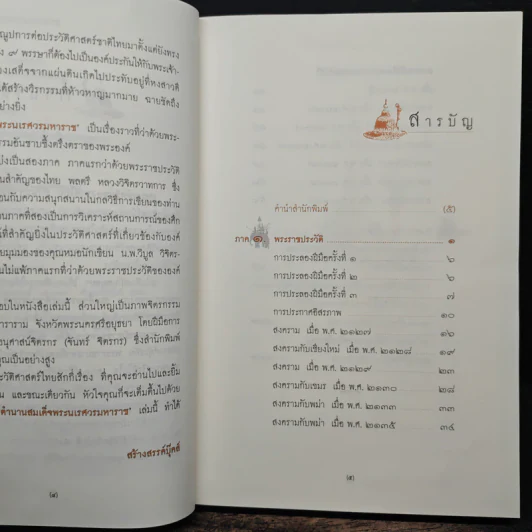 ณูปการต่อประวัติศาสตร์ชาติไทยมาตั้งแต่ยังทรง
๙ พรรษาก็ต้องไปเป็นองค์ประกันให้กับพระเจ้า-
องเสด็จจากแผ่นดินเกิดไปประทับอยู่ที่หงสาวดี
ด้สร้างวีรกรรมที่ห้าวหาญมากมาย ฉายชัดถึง
ย่างยิ่ง
พระนเรศวรมหาราช" เป็นเรื่องราวที่ว่าด้วยพระ-
รรมอันซาบซึ้งตรึงตราของพระองค์
บ่งเป็นสองภาค ภาคแรกว่าด้วยพระราชประวัติ
นสำคัญของไทย พลตรี หลวงวิจิตรวาทการ ซึ่ง
อนกับความสนุกสนานในกลวิธีการเขียนของท่าน
านภาคที่สองเป็นการวิเคราะห์สถานการณ์ของศึก
ที่สำคัญยิ่งในประวัติศาสตร์ที่เกี่ยวข้องกับองค์
ยมุมมองของคุณหมอนักเขียน น.พ.วิบูล วิจิตร-
นไม่แพ้ภาคแรกที่ว่าด้วยพระราชประวัติขององค์
อบในหนังสือเล่มนี้ ส่วนใหญ่เป็นภาพจิตรกรรม
าราราม จังหวัดพระนครศรีอยุธยา โดยฝีมือการ
อนุศาสน์จิตรกร (จันทร์ จิตรกร) ซึ่งสำนักพิมพ์
คุณเป็นอย่างสูง
ะวัติศาสตร์ไทยสักกี่เรื่อง ที่คุณจะอ่านไปและยิ้ม
ม และขณะเดียวกัน หัวใจคุณก็จะเต็มตื้นไปด้วย
ตำนานสมเด็จพระนเรศวรมหาราช" เล่มนี้ ทำได้
สร้างสรรค์บุ๊คส์
(๔)
สารบัญ
คำนำสำนักพิมพ์ (๕)
ภาค ๑ พระราชประวัติ ๑
การประลองฝีมือครั้งที่ ๑ ๖
การประลองฝีมือครั้งที่ ๒ ๖
การประลองฝีมือครั้งที่ ๓ ๗
การประกาศอิสรภาพ ๑๐
สงคราม เมื่อ พ.ศ. ๒๑๒๗ ๑๖
สงครามกับเชียงใหม่ เมื่อ พ.ศ. ๒๑๒๘ ๑๙
สงคราม เมื่อ พ.ศ. ๒๑๒๙ ๒๓
สงครามกับเขมร เมื่อ พ.ศ. ๒๑๓๐ ๒๘
สงครามกับพม่า เมื่อ พ.ศ. ๒๑๓๓ ๓๓
สงครามกับพม่า เมื่อ พ.ศ. ๒๑๓๕ ๓๔